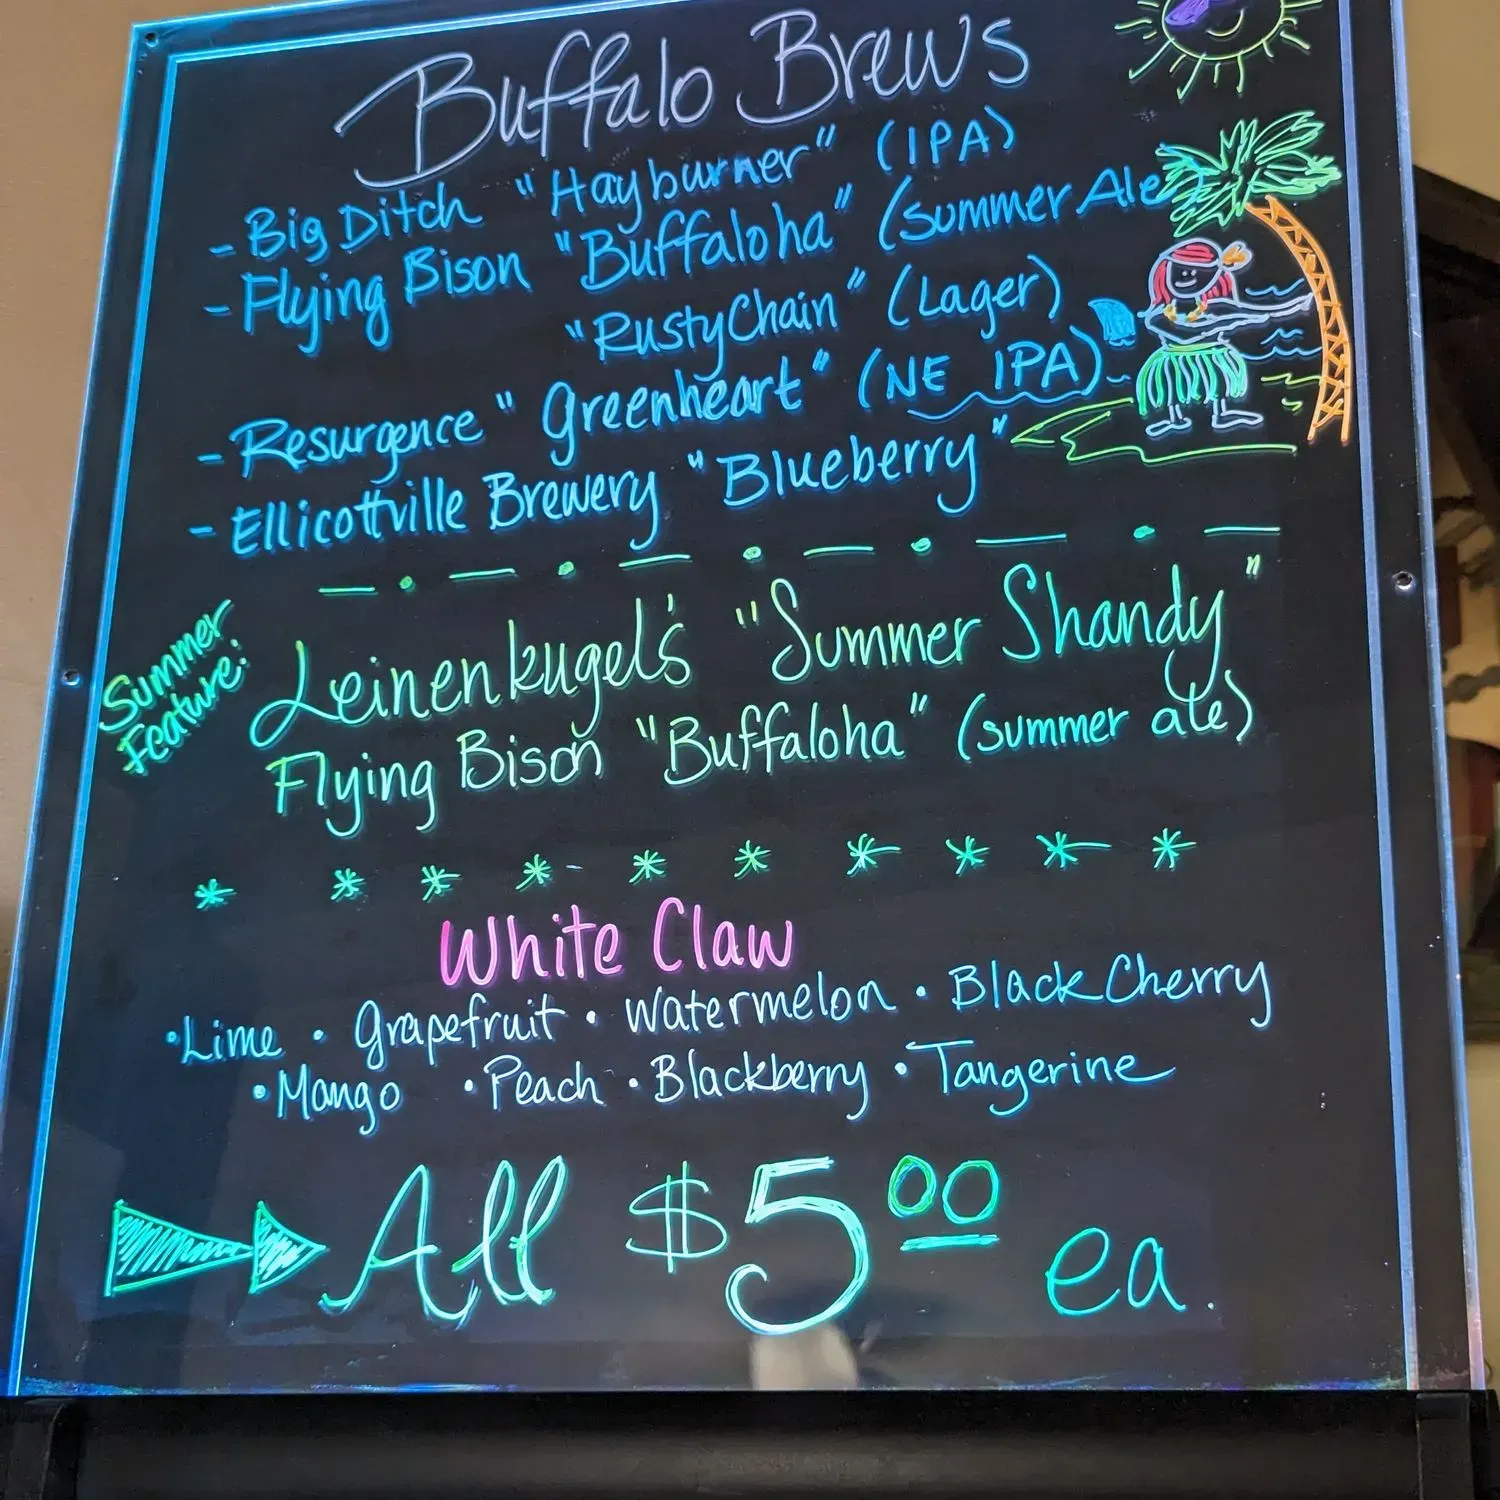 Buffalo Brews
- Big Ditch "Hayburner" (IPA)
- Flying Bison "Buffaloha" (Summer Ale)
"Rusty Chain" (Lager)
- Resurgence "Greenheart" (NE IPA)
- Ellicottville Brewery "Blueberry"
Summer
Feature:
Leinenkugel's "Summer Shandy"
Flying Bison "Buffaloha" (summer ale)
* * * * * * * * * *
White Claw
• Lime • Grapefruit • Watermelon • Black Cherry
• Mango • Peach • Blackberry • Tangerine
All $5.00 ea.